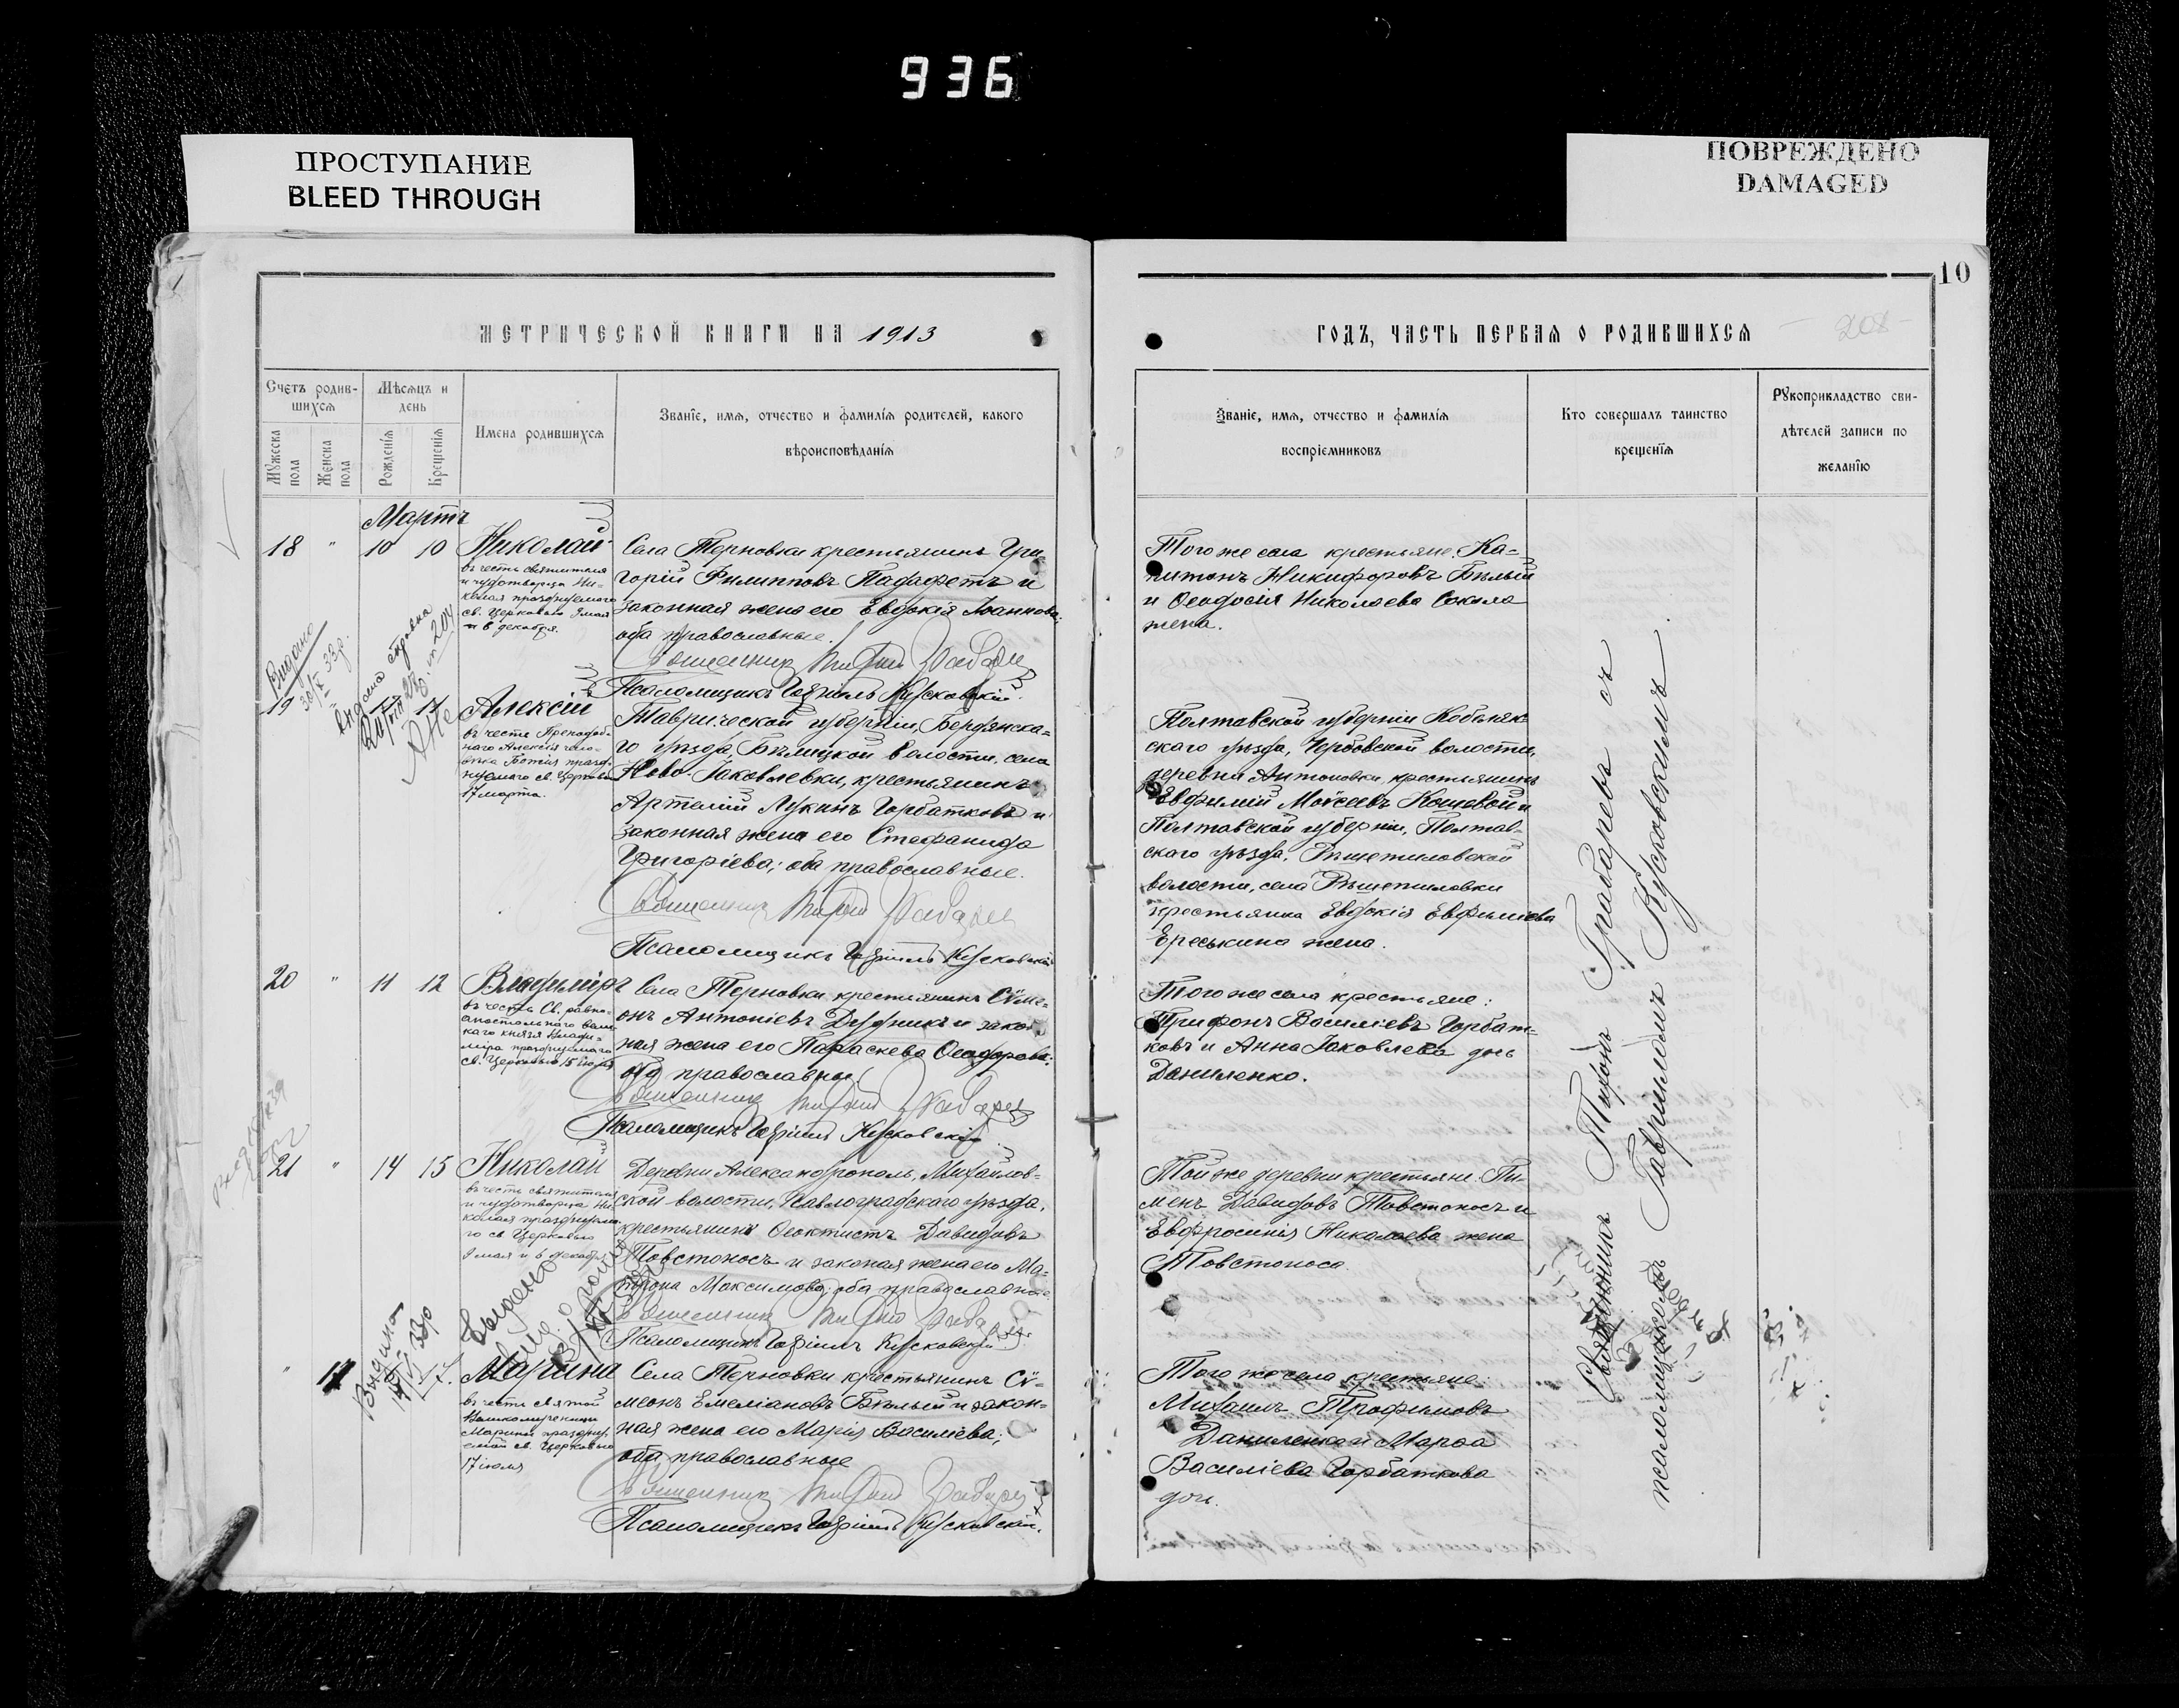 936
ПРОСТУПАНИЕ
BLEED THROUGH
ПОВРЕЖДЕНО
DAMAGED
10
МЕТРИЧЕСКОЙ КНИГИ НА 1913
ГОДЪ, ЧАСТЬ ПЕРВАЯ О РОДИВШИХСЯ
208
Счетъ родив-
шихся
Мужеска
пола
Женска
пола
Мѣсяцъ и
день
Рожденія
Крещенія
Имена родившихся
Званіе, имя, отчество и фамилія родителей, какого
вѣроисповѣданія
Званіе, имя, отчество и фамилія
воспріемниковъ
Кто совершалъ таинство
крещенія
Рукоприкладство сви-
дѣтелей записи по
желанію
Мартъ
18 " 10 10 Николай
въ честь святителя
и чудотворца Ни-
колая празднуемаго
св. Церковью 9 мая
и 6 декабря.
Села Терновки крестьянинъ Гри-
горій Филипповъ Падафетъ и
законная жена его Евдокія Іоаннова;
оба православные.
Псаломщикъ Гавріилъ Кусковскій.
Того же села крестьяне: Ка-
питонъ Никифоровъ Бѣлый
и Ѳеодосія Николаева Сокола
жена.
Видано
19
Алексій
въ честь Преподоб-
наго Алексія чело-
вѣка Божія празд-
нуемаго св. Церковью
17 марта.
Таврической губерніи, Бердянска-
го уѣзда, волости, села
Ново-Іаковлевки, крестьянинъ
Артемій Лукинъ Горбатковъ и
законная жена его Стефанида
Григоріева; оба православные.
Псаломщикъ Гавріилъ Кусковскій
Полтавской губерніи Кобеляк-
скаго уѣзда, волости,
деревни Антоновки, крестьянинъ
Евфимій Моѵсеевъ Кошевой и
Полтавской губерніи, Полтав-
скаго уѣзда, Рѣшетиловской
волости, села Рѣшетиловки
крестьянка Евдокія Евфиміева
Ереськина жена.
20 " 11 12 Владиміръ
въ честь Св. равно-
апостольнаго вели-
каго князя Влади-
міра празднуемаго
св. Церковью 15 іюля
Села Терновки крестьянинъ Сѵме-
онъ Антоніевъ Дудникъ и закон-
ная жена его Параскева Ѳеодорова;
оба православные.
Псаломщикъ Гавріилъ Кусковскій.
Того же села крестьяне:
Трифонъ Василіевъ Горбат-
ковъ и Анна Іаковлева дочь
Даниленко.
21 " 14 15 Николай
въ честь святителя
и чудотворца Ни-
колая празднуема-
го св. Церковью
9 мая и 6 декабря
Деревни Александрополь, Михайлов-
ской волости, Павлоградскаго уѣзда,
крестьянинъ Ѳеоктистъ Давидовъ
Товстоносъ и законая жена его Ма-
трона Максимова; оба православные
Псаломщикъ Гавріилъ Кусковскій.
Той же деревни крестьяне: Пи-
менъ Давидовъ Товстоносъ и
Евфросинія Николаева жена
Товстоноса.
Видано
" 17 Марина
въ честь святой
Великомученицы
Марины праздну-
емой св. Церковью
17 іюля
Села Терновки крестьянинъ Сѵ-
меонъ Емеліановъ Бѣлый и закон-
ная жена его Марія Василіева;
оба православные
Псаломщикъ Гавріилъ Кусковскій.
Того же села крестьяне:
Михаилъ Трофимовъ
Даниленко и Марѳа
Василіева Горбаткова
дочь.
Священникъ Тихонъ Грабаревъ съ
псаломщикомъ Гавріиломъ Кусковскимъ.